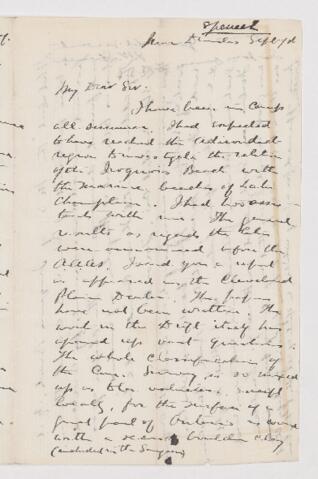 Spencer
near Dundas Sept 7th
My Dear Sir.
I have been in Camp
all summer. I had expected
to have reached the Adirondack
region to investigate the relation
of the Iroquois Beach with
the marine beaches of Lake
Champlain. I had no assis-
tants with me. The general
results as regards the lake
were announced before the
A.A.A.S. I send you a report
as appeared in the Cleveland
Plain Dealer. The papers
have not been written. The
work in the Drift itself has
opened up vast questions.
The whole Classification of
the Can. Survey is so mixed
up as to be valueless, except
locally, for the surface of a
great part of Ontario is covered
with a second boulder clay
(included in the Saugeen)